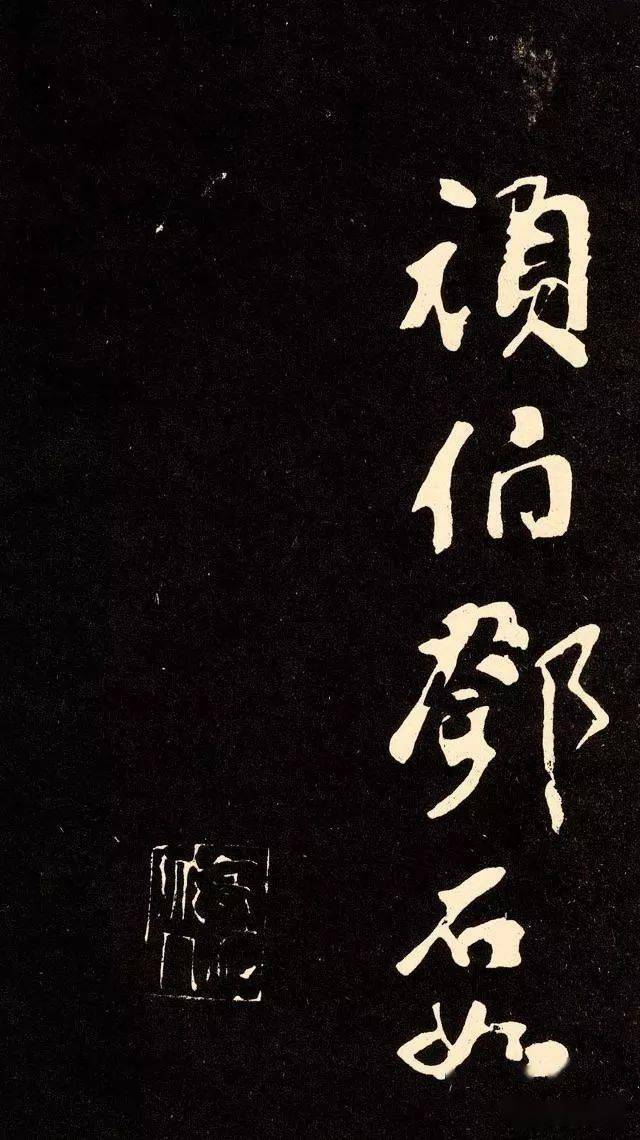 頑伯鄧石如